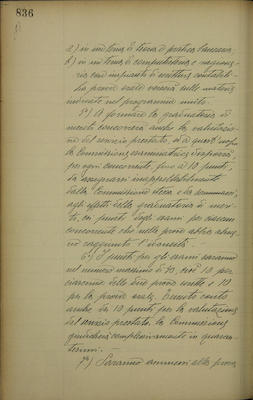 836
a) in un tema di tecnica e pratica bancaria;
b) in un tema di computisteria e ragione-
ria con impianto di scritture contabili.
La prova orale verserà sulle materie
indicate nel programma unito.
5°) A formare la graduatoria di
merito concorrerà anche la valutazio-
ne del servizio prestato, e a quest'
la Commissione esaminatrice disporrà
per ogni concorrente, fino a 10 punti,
da assegnarsi inappellabilmente
dalla Commissione stessa e da sommarsi,
agli effetti della graduatoria di meri-
to, coi punti degli esami per ciascun
concorrente che nelle prove abbia
conseguito l'idoneità.
6°) I punti per gli esami saranno
nel numero massimo di 30, cioè 10 per
ciascuna delle due prove scritte e 10
per la prova orale. Tenuto conto
anche dei 10 punti per la valutazione
del servizio prestato, la Commissione
giudicherà complessivamente in quaran-
tesimi.
7°) Saranno ammessi alla prova